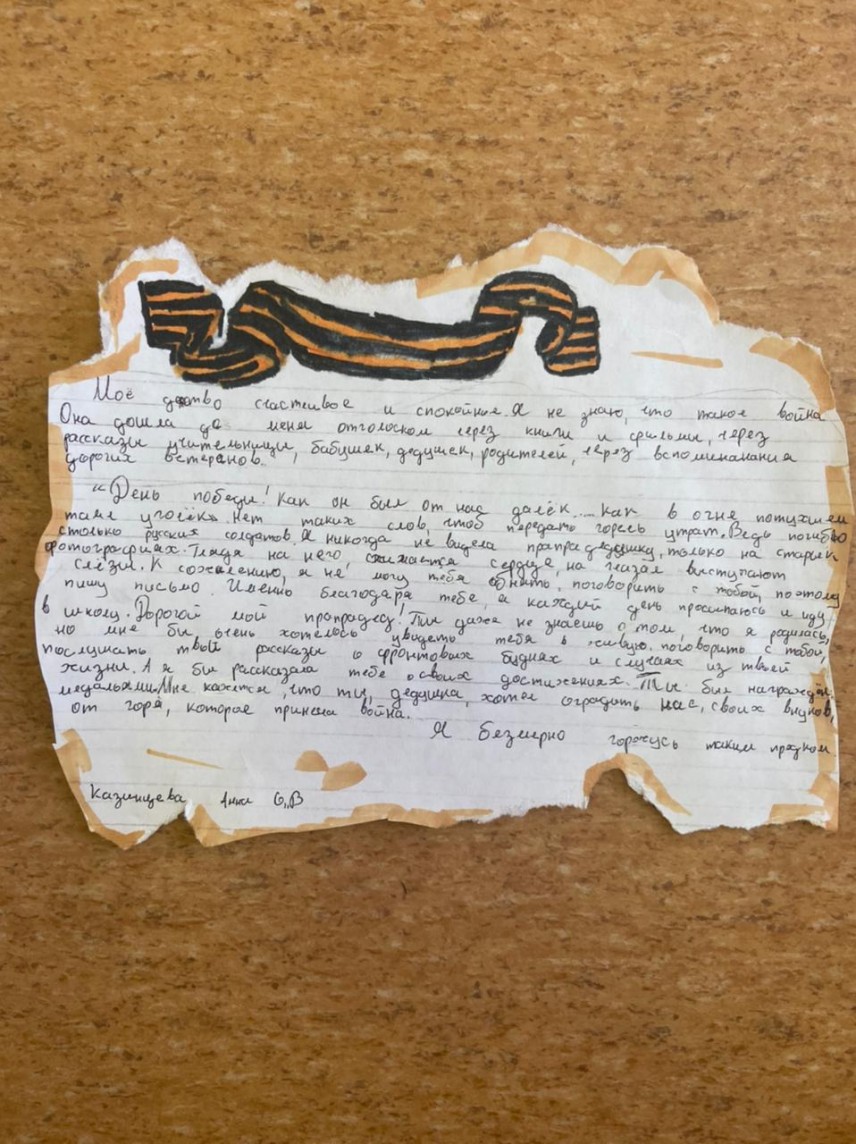 Моё детство счастливое и спокойное. Я не знаю, что такое война
Она дошла до меня отголоском через книги и фильмы, через
рассказы учительницы, бабушек, дедушек, родителей, через воспоминания
дорогих ветеранов.
"День победы! Как он был от нас далёк... Как в огне потухшем
таял уголёк". Нет таких слов, чтоб передать горесь утрат. Ведь погибло
столько русских солдатов. Я никогда не видела прапрадедушку, только на старых
фотографиях. Глядя на него, сжимается сердце, на глазах выступают
слёзы. К сожалению, я не могу тебя обнять, поговорить с тобой, поэтому
пишу письмо. Именно благодаря тебе, я каждый день просыпаюсь и иду
в школу. Дорогой мой прапрадед! Ты даже не знаешь о том, что я родилась,
но мне бы очень хотелось увидеть тебя в живую, поговорить с тобой,
послушать твои рассказы о фронтовых буднях и случаях из твоей
жизни. А я бы рассказала тебе о своих достижениях. Ты был награждён
медалями. Мне кажется, что ты, дедушка, хотел оградить нас, своих внуков,
от горя, которое принесла война.
Я безмерно горжусь таким предком
Казинцева Анна 6,,В